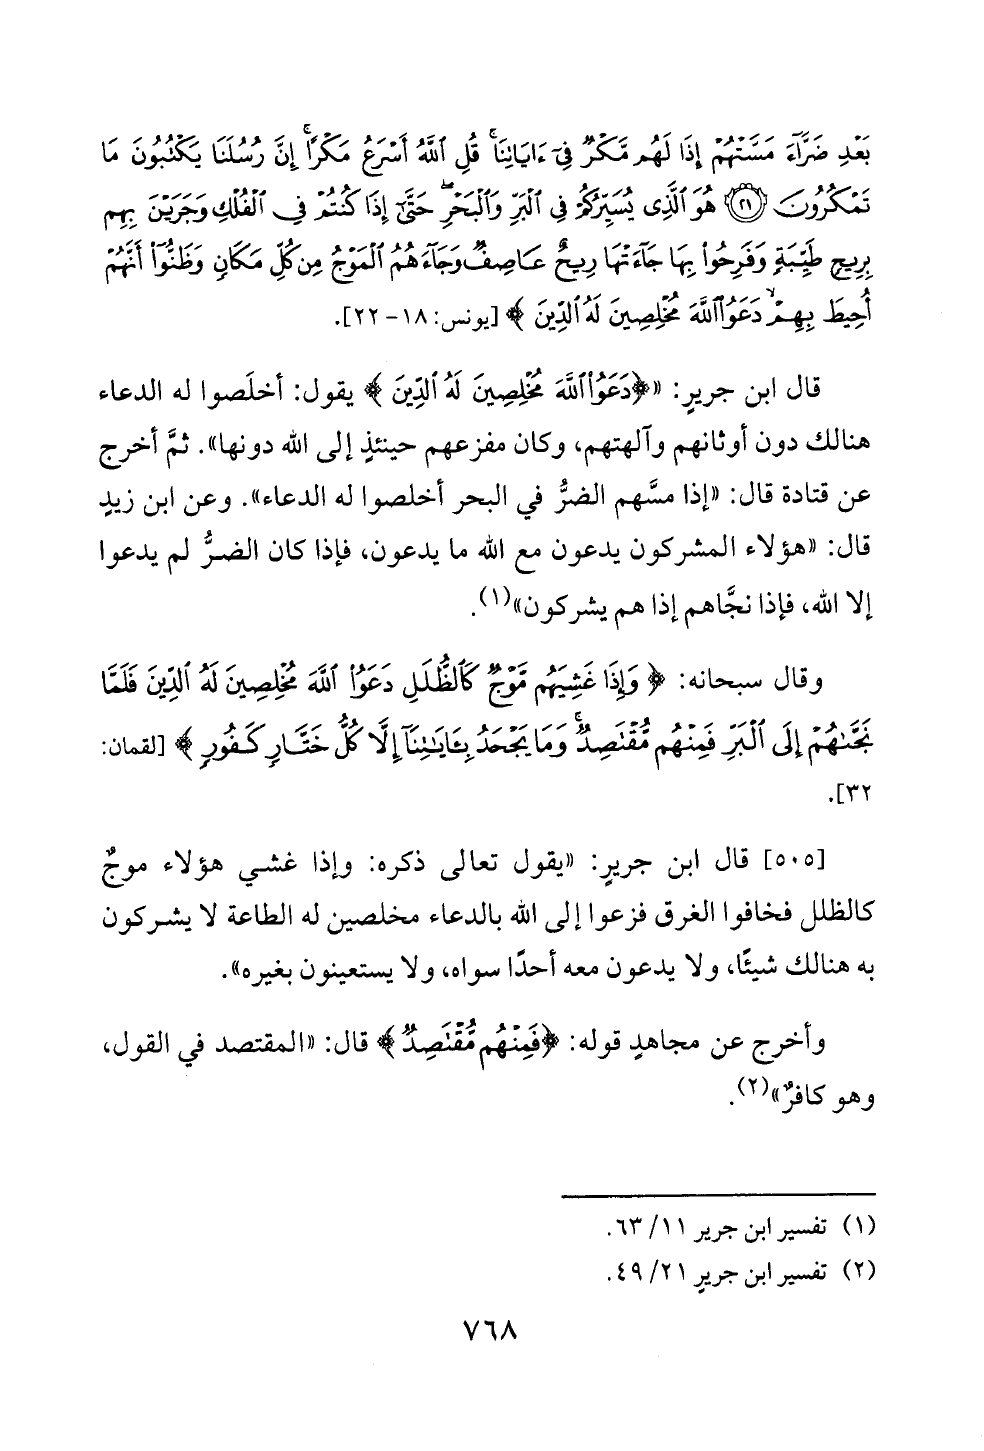 بَعْدِ ضَرَّآءَ مَسَّتْهُمْ إِذَا لَهُم مَّكْرٌ فِىٓ ءَايَاتِنَاۚ قُلِ ٱللَّهُ أَسْرَعُ مَكْرًاۚ إِنَّ رُسُلَنَا يَكْتُبُونَ مَا
تَمْكُرُونَ ۝٢١ هُوَ ٱلَّذِى يُسَيِّرُكُمْ فِى ٱلْبَرِّ وَٱلْبَحْرِۖ حَتَّىٰٓ إِذَا كُنتُمْ فِى ٱلْفُلْكِ وَجَرَيْنَ بِهِم
بِرِيحٍ طَيِّبَةٍ وَفَرِحُوا۟ بِهَا جَآءَتْهَا رِيحٌ عَاصِفٌ وَجَآءَهُمُ ٱلْمَوْجُ مِن كُلِّ مَكَانٍ وَظَنُّوٓا۟ أَنَّهُمْ
أُحِيطَ بِهِمْۙ دَعَوُا۟ ٱللَّهَ مُخْلِصِينَ لَهُ ٱلدِّينَ ﴾ [يونس: ١٨-٢٢].
قال ابن جريرٍ: «﴿دَعَوُا۟ ٱللَّهَ مُخْلِصِينَ لَهُ ٱلدِّينَ ﴾ يقول: أخلَصوا له الدعاء
هنالك دون أوثانهم وآلهتهم، وكان مفزعهم حينئذٍ إلى الله دونها». ثمَّ أخرج
عن قتادة قال: «إذا مسَّهم الضرُّ في البحر أخلصوا له الدعاء». وعن ابن زيدٍ
قال: «هؤلاء المشركون يدعون مع الله ما يدعون، فإذا كان الضرُّ لم يدعوا
إلا الله، فإذا نجَّاهم إذا هم يشركون»(١).
وقال سبحانه: ﴿ وَإِذَا غَشِيَهُم مَّوْجٌ كَٱلظُّلَلِ دَعَوُا۟ ٱللَّهَ مُخْلِصِينَ لَهُ ٱلدِّينَ فَلَمَّا
نَجَّىٰهُمْ إِلَى ٱلْبَرِّ فَمِنْهُم مُّقْتَصِدٌۚ وَمَا يَجْحَدُ بِـَٔايَـٰتِنَآ إِلَّا كُلُّ خَتَّارٍ كَفُورٍ ﴾ [لقمان:
٣٢].
[٥٠٥] قال ابن جريرٍ: «يقول تعالى ذكره: وإذا غشي هؤلاء موجٌ
كالظلل فخافوا الغرق فزعوا إلى الله بالدعاء مخلصين له الطاعة لا يشركون
به هنالك شيئًا، ولا يدعون معه أحدًا سواه، ولا يستعينون بغيره».
وأخرج عن مجاهدٍ قوله: ﴿فَمِنْهُم مُّقْتَصِدٌ﴾ قال: «المقتصد في القول،
وهو كافرٌ»(٢).
(١) تفسير ابن جرير ١١/ ٦٣.
(٢) تفسير ابن جريرٍ ٢١/ ٤٩.
٧٦٨